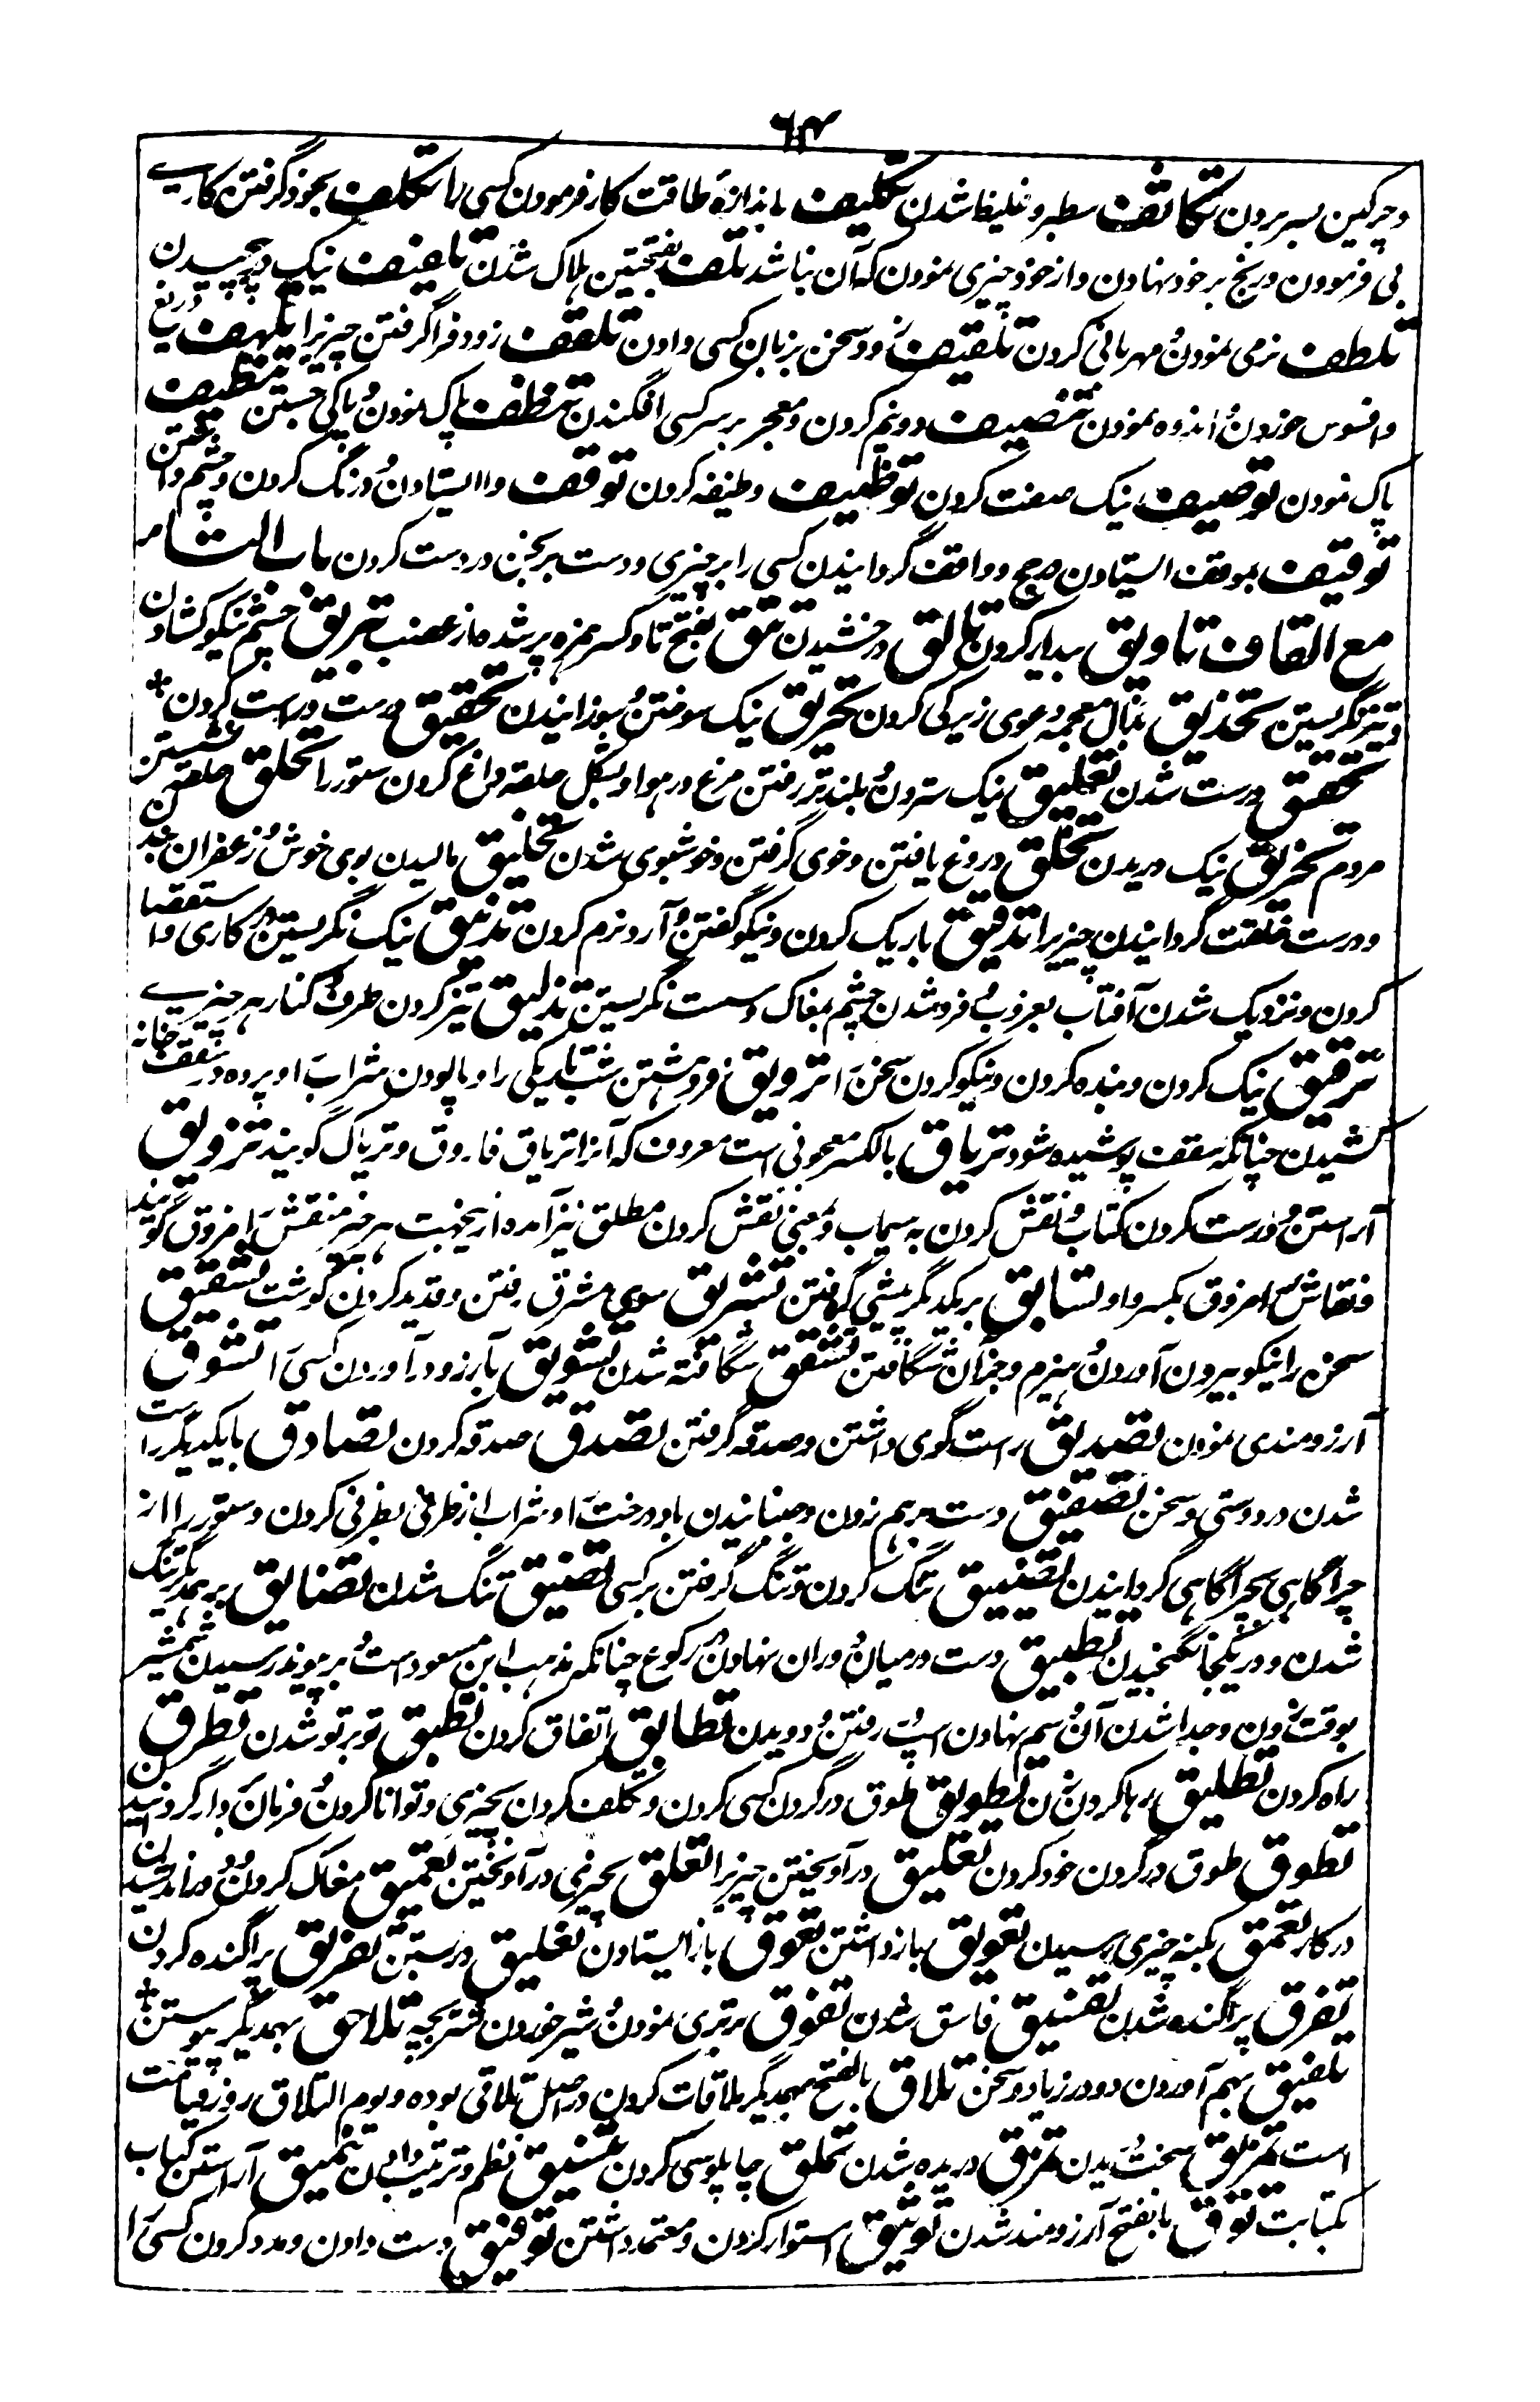 ۶۴
و چرکین بسر بردن تکاثف سطبر و غلیظ شدن تکلیف باندازهٔ طاقت کار فرمودن کسی را تکلف بخود گرفتن کاری
بی فرمودن و رنج بر خود نهادن و از خود چیزی نمودن که آن نباشد تلف بفتحتین هلاک شدن تلفیف نیک در پیچیدن
تلطف نرمی نمودن و مهربانی کردن تلقیف زود سخن بزبان کسی دادن تلقف زود فرا گرفتن چیزیرا تلهف دریغ
و افسوس خوردن و اندوه نمودن تنصیف دو نیم کردن و معجر بر سر کسی افگندن تنظف پاک نمودن و پاکی جستن تنظیف
پاک نمودن توصیف نیک صفت کردن توظیف وظیفه کردن توقف وا ایستادن و درنگ کردن و چشم داشتن
توقیف بموقف ایستادن حج و واقف گردانیدن کسی را بر چیزی و دست برنجن در دست کردن باب التاء
مع القاف تاویق بیدار کردن تالق درخشیدن تئق بفتح تا و کسر همزه پر شده از غضب تبریق چشم نیکو کشادن
و تیز نگریستن تحذیق بذال معجمه دعوی زیرکی کردن تحریق نیک سوختن و سوزانیدن تحقیق درست و راست کردن
تحقق درست شدن تحلیق نیک ستردن و بلند تر رفتن مرغ در هوا و بشکل حلقه داغ کردن ستور را تحلق حلقه نشستن
مردم تخریق نیک دریدن تخلق دروغ بافتن و خوی گرفتن و خوشبوی شدن تخلیق مالیدن بوی خوش و زعفران بجسد
و درست خلقت گردانیدن چیزیرا تدقیق باریک کردن و نیکو گفتن و آرد نرم کردن تدنیق نیک نگریستن و در کاری استقصا
کردن و نزدیک شدن آفتاب بغروب و فرو شدن چشم بمغاک و سست نگریستن تذلیق تیز کردن طرف و کنار هر چیزی
ترقیق نیک کردن و بنده کردن و نیکو کردن سخن را ترویق فرو هشتن شب تاریکی را و پالودن شراب را و پرده در سقف خانه
کشیدن چنانکه سقف پوشیده شود تریاق بالکسر معجونی است معروف که آنرا تریاق فاروق و تریاک گویند تزویق
آراستن و درست کردن کتاب و نقش کردن به سیماب و بمعنی نقش کردن مطلق نیز آمده ازینجهت هر چیز منقش را مزوق گویند
و نقاش را مزوق بکسر واو تسابق بر یکدیگر پیشی گرفتن تشریق سوی مشرق رفتن و قدید کردن گوشت تشقیق
سخن را نیکو بیرون آوردن و هیزم و جز آن شگافتن تشقق شگافته شدن تشویق بآرزو در آوردن کسی را تشوق
آرزومندی نمودن تصدیق راست گوی داشتن و صدقه گرفتن تصدق صدقه کردن تصادق با یکدیگر راست
شدن در دوستی و سخن تصفیق دست بر هم زدن و جنبانیدن باد درخت را و شراب از ظرفی بظرفی کردن و ستور را از
چراگاهی بچراگاهی گردانیدن تضییق تنگ کردن و تنگ گرفتن بر کسی تضیق تنگ شدن تضایق بر همدیگر تنگ
شدن و در یکجا نگنجیدن تطبیق دست در میان دو ران نهادن در رکوع چنانکه مذهب ابن مسعود است و بر پیوند رسیدن شمشیر
بوقت زدن و جدا شدن آن و سم نهادن اسپ در رفتن و دویدن تطابق اتفاق کردن تطبق تو بر تو شدن تطرق
راه کردن تطلیق رها کردن زن تطویق طوق در گردن کسی کردن و تکلف کردن بچیزی و توانا کردن و فرمان بردار گردانیدن
تطوق طوق در گردن خود کردن تعلیق در آویختن چیزیرا تعلق بچیزی در آویختن تعمیق مغاک کردن و دور اندیشیدن
در کار تعمق بکنه چیزی رسیدن تعویق باز داشتن تعوق باز ایستادن تغلیق در بستن تفریق پراگنده کردن
تفرق پراگنده شدن تفسیق فاسق شدن تفوق برتری نمودن و شیر خوردن شتر بچه تلاحق بهمدیگر پیوستن
تلفیق بهم آوردن دو درز یا دو سخن تلاق بالفتح بهمدیگر ملاقات کردن در اصل تلاقی بوده و یوم التلاق روز قیامت
است تمزیق سخت دریدن تمزق دریده شدن تملق چاپلوسی کردن تنسیق نظم و ترتیب دادن تنمیق آراستن کتاب
بکتابت توق بالفتح آرزومند شدن توثیق استوار کردن و معتمد داشتن توفیق دست دادن و مدد کردن کسی را